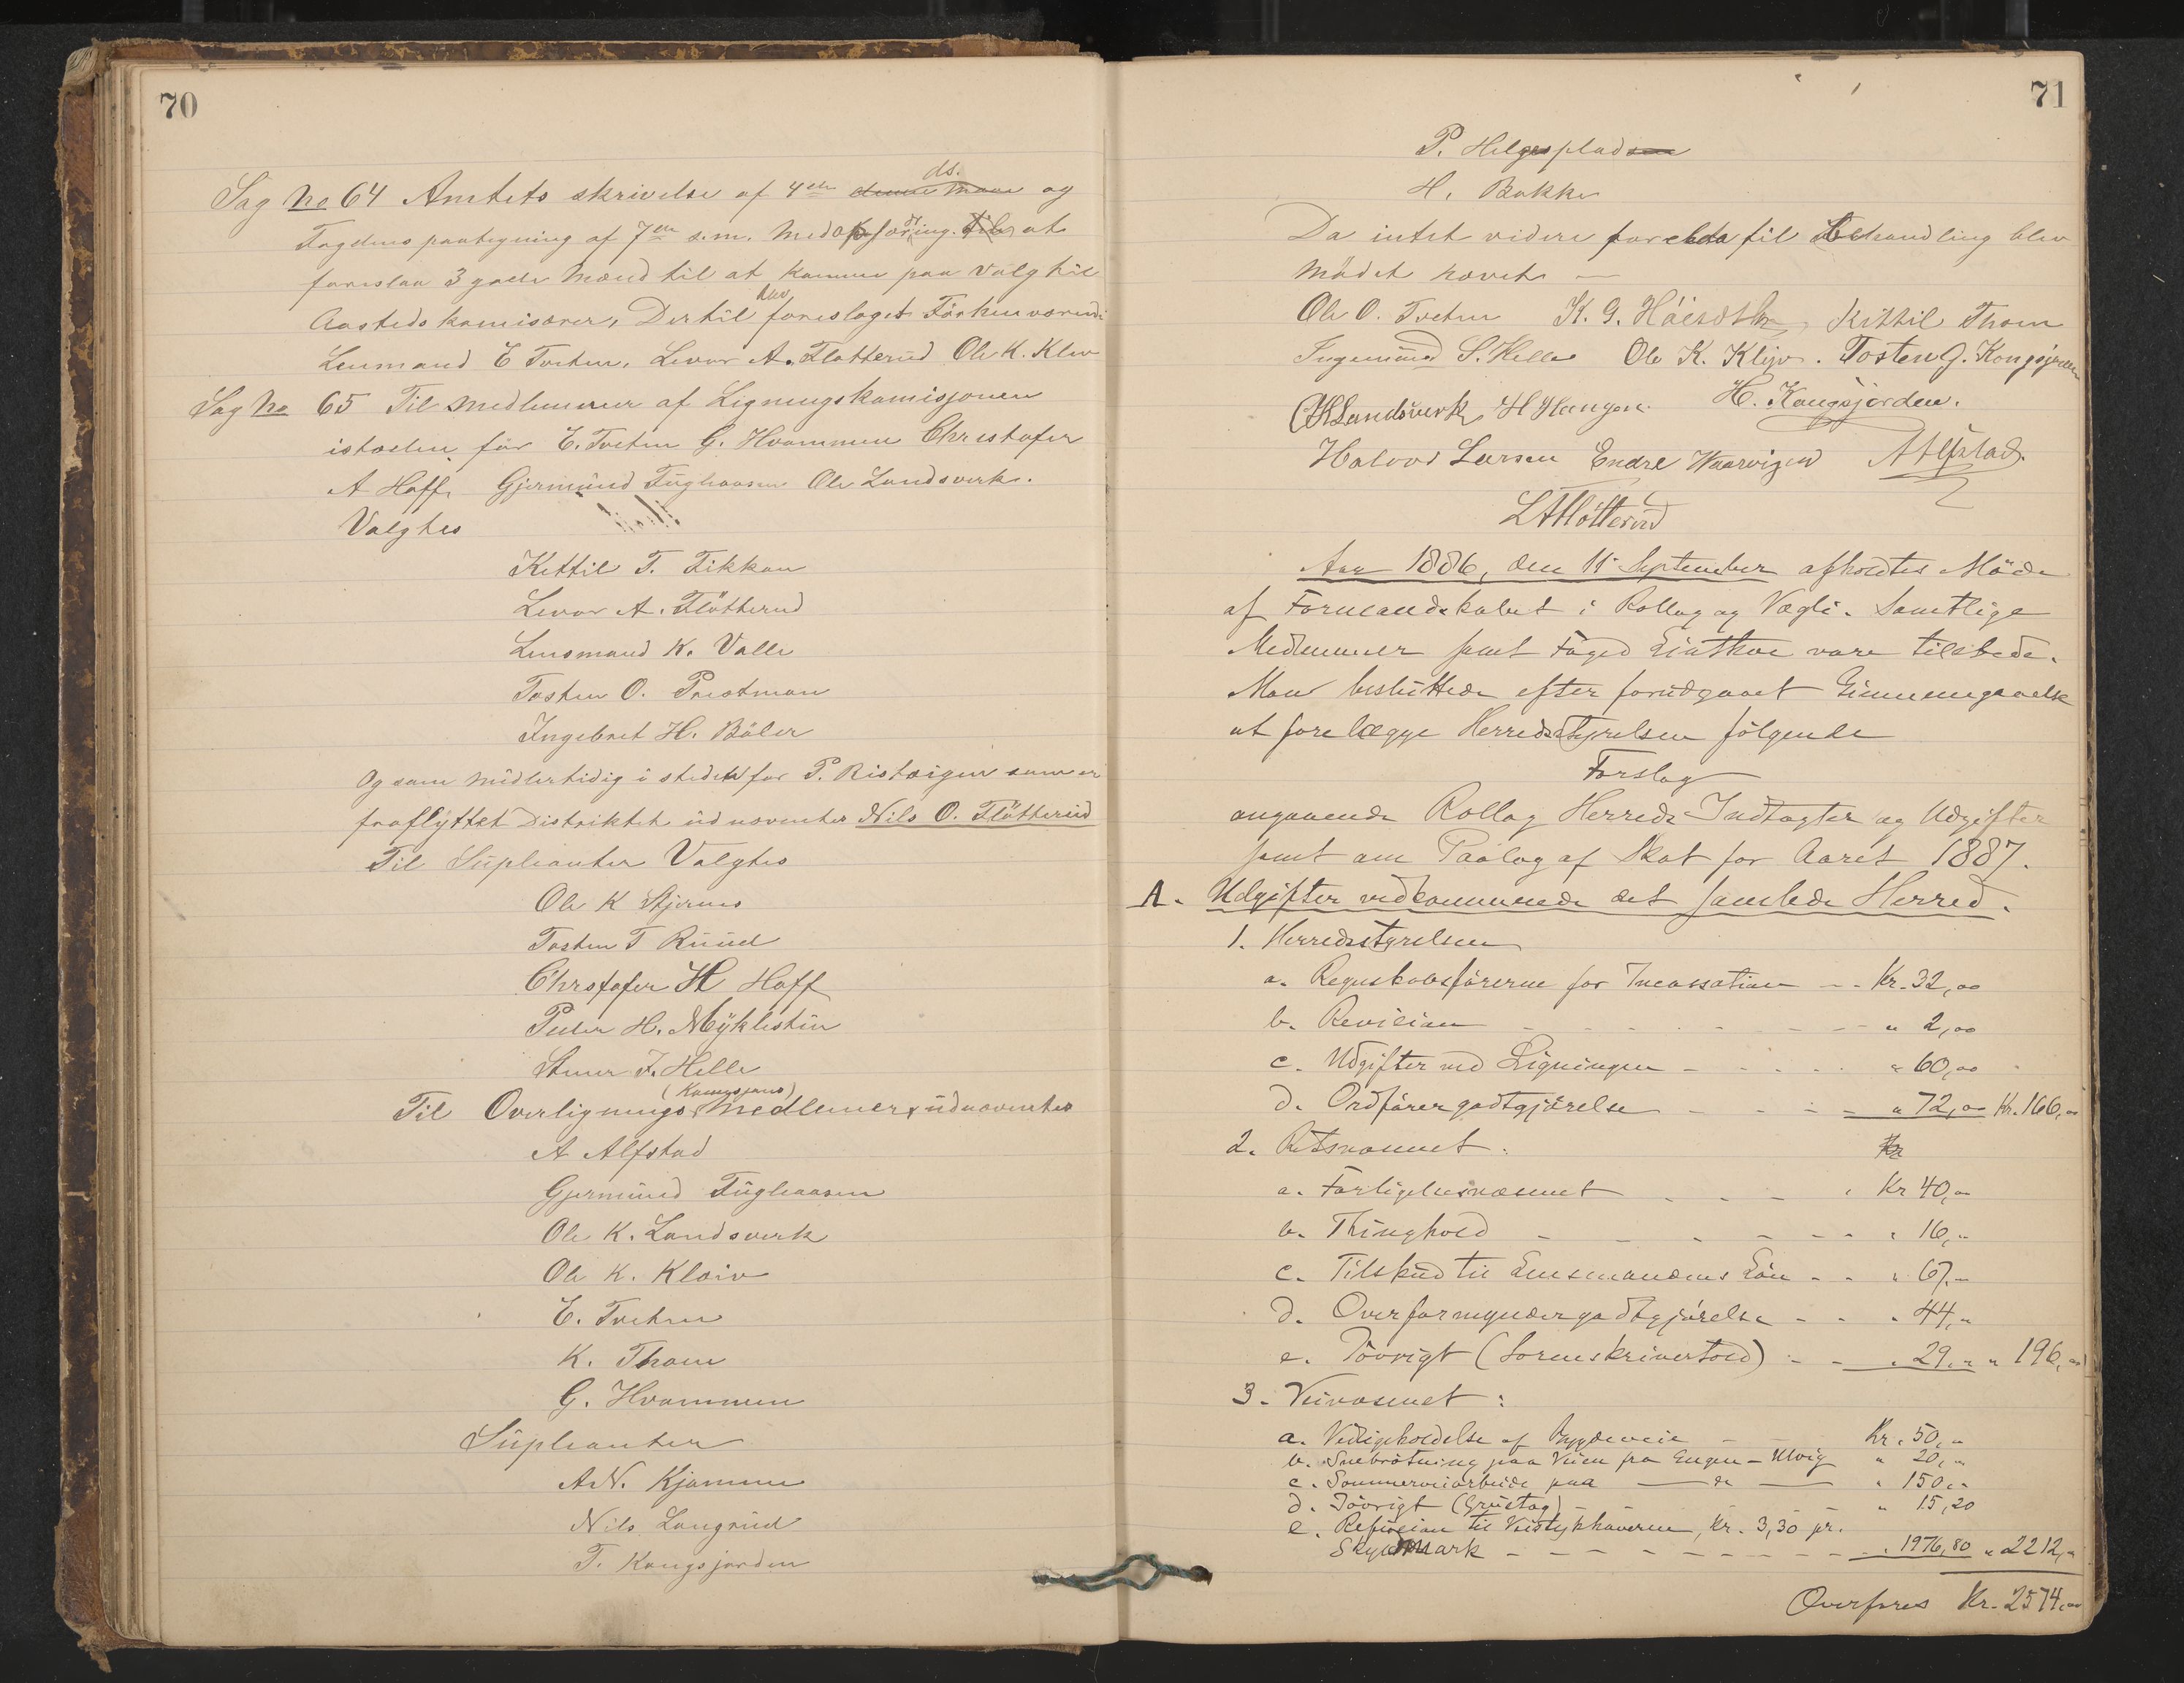 70
Sag No 64 Amtets skrivelse af 4de denne Maan ds. og
Fogdens paategning af 7de s.m. med opfordring til at
foreslaa 3 gode Mænd til at komme paa Valg til
Aasteds komisærer, Dertil blev foreslaget Förhenværende
Lensmand E Traaen, Levor A. Fløtterud Ole K. Kleiv
Sag No 65 Til Medlemmer af Ligningskomisjonen
istæden for E. Tveten G. Hvammen Christofer
A Hoff Gjermund Fuglaasen Ole Landsverk.
Valgtes
Kettil T. Fikkan
Levor A. Flötterud
Lensmand K. Valle
Tosten O. Prestmon
Ingebret H. Böler
Og som midlertidig i stedet for P. Ristoeigen som er
fraflyttet Distriktet udnævntes Nils O. Flötterud
Til Süpleanter Valgtes
Ole K Stjernes
Tosten T Rüüd
Chrofofer H Hoff
Peder H. Myklestün
Stener F. Helle
Til Overlignings (Komisjons) Medlemer udnævntes
A Alfstad
Gjermünd Füglaasen
Ole K. Landsverk
Ole K. Klaiv
E. Tveten
K. Thom
G. Hvammen
Süpleanter
A.N. Kjemme
Nils Langrüd
T. Kongsjorden
71
P. Helgesplads
H. Bakke
Da intet videre forelaa til Behandling blev
Mödet hævet
Ole O. Tveten K. G. Kittil Thom
Ingemünd S. Helle Ole K. Klejv. Tosten G. Kongsjorden
Landsverk H Haugen H. Kongsjorden.
Halvor Larsen Endre Waarvigen A Alfstad.
L A Flötterud
Aar 1886, den 11 September afholdtes Möde
af Formandskabet i Rollag og Vægli. Samtlige
Medlemmer samt Foged vare tilstede.
Man besluttede efter forudgaaet Gjennemgaaelse
at forelægge Herredsstyrelsen fölgende
Forslag
angaaende Rollag Herreds Indtægter og Udgifter
samt om Paalæg af Skat for Aaret 1887.
A. Udgifter vedkommende det samlede Herred.
1. Herredsstyrelsen
a. Regnskabsförerne for Incassation - - Kr. 32,00
b. Revision - - - - - " 2,00
c. Udgifter ved Ligningen - - - - " 60,00
d. Ordförergodtgjörelse - - - - " 72,00 Kr. 166,00
2. Retsvæsenet: Kr
a. Forligelsesvæsenet - - - - Kr 40,00
b. Thinghold - - - - - - " 16,"
c. Tilskud til Lensmandens Lön - - " 67,"
d. Overformyndergodtgjörelse - - " 44,"
e. Iövrigt (Sorenskrivertold) - - " 29," " 196,00
3. Veivæsenet:
a. Vedligeholdelse af Bygdeveie - - Kr. 50,"
b. Snebrötning paa Veien fra Engen - Ulvig " 20,"
c. Sommerveiarbeide paa — do — " 150,"
d. Iövrigt (Grustag) - - - - " 15,20
e. Refusion til Veistykhaverne, Kr. 3,30 pr.
Skyldmark - - - - - - - - " 1976,80 " 2212,"
Overføres Kr. 2574,00